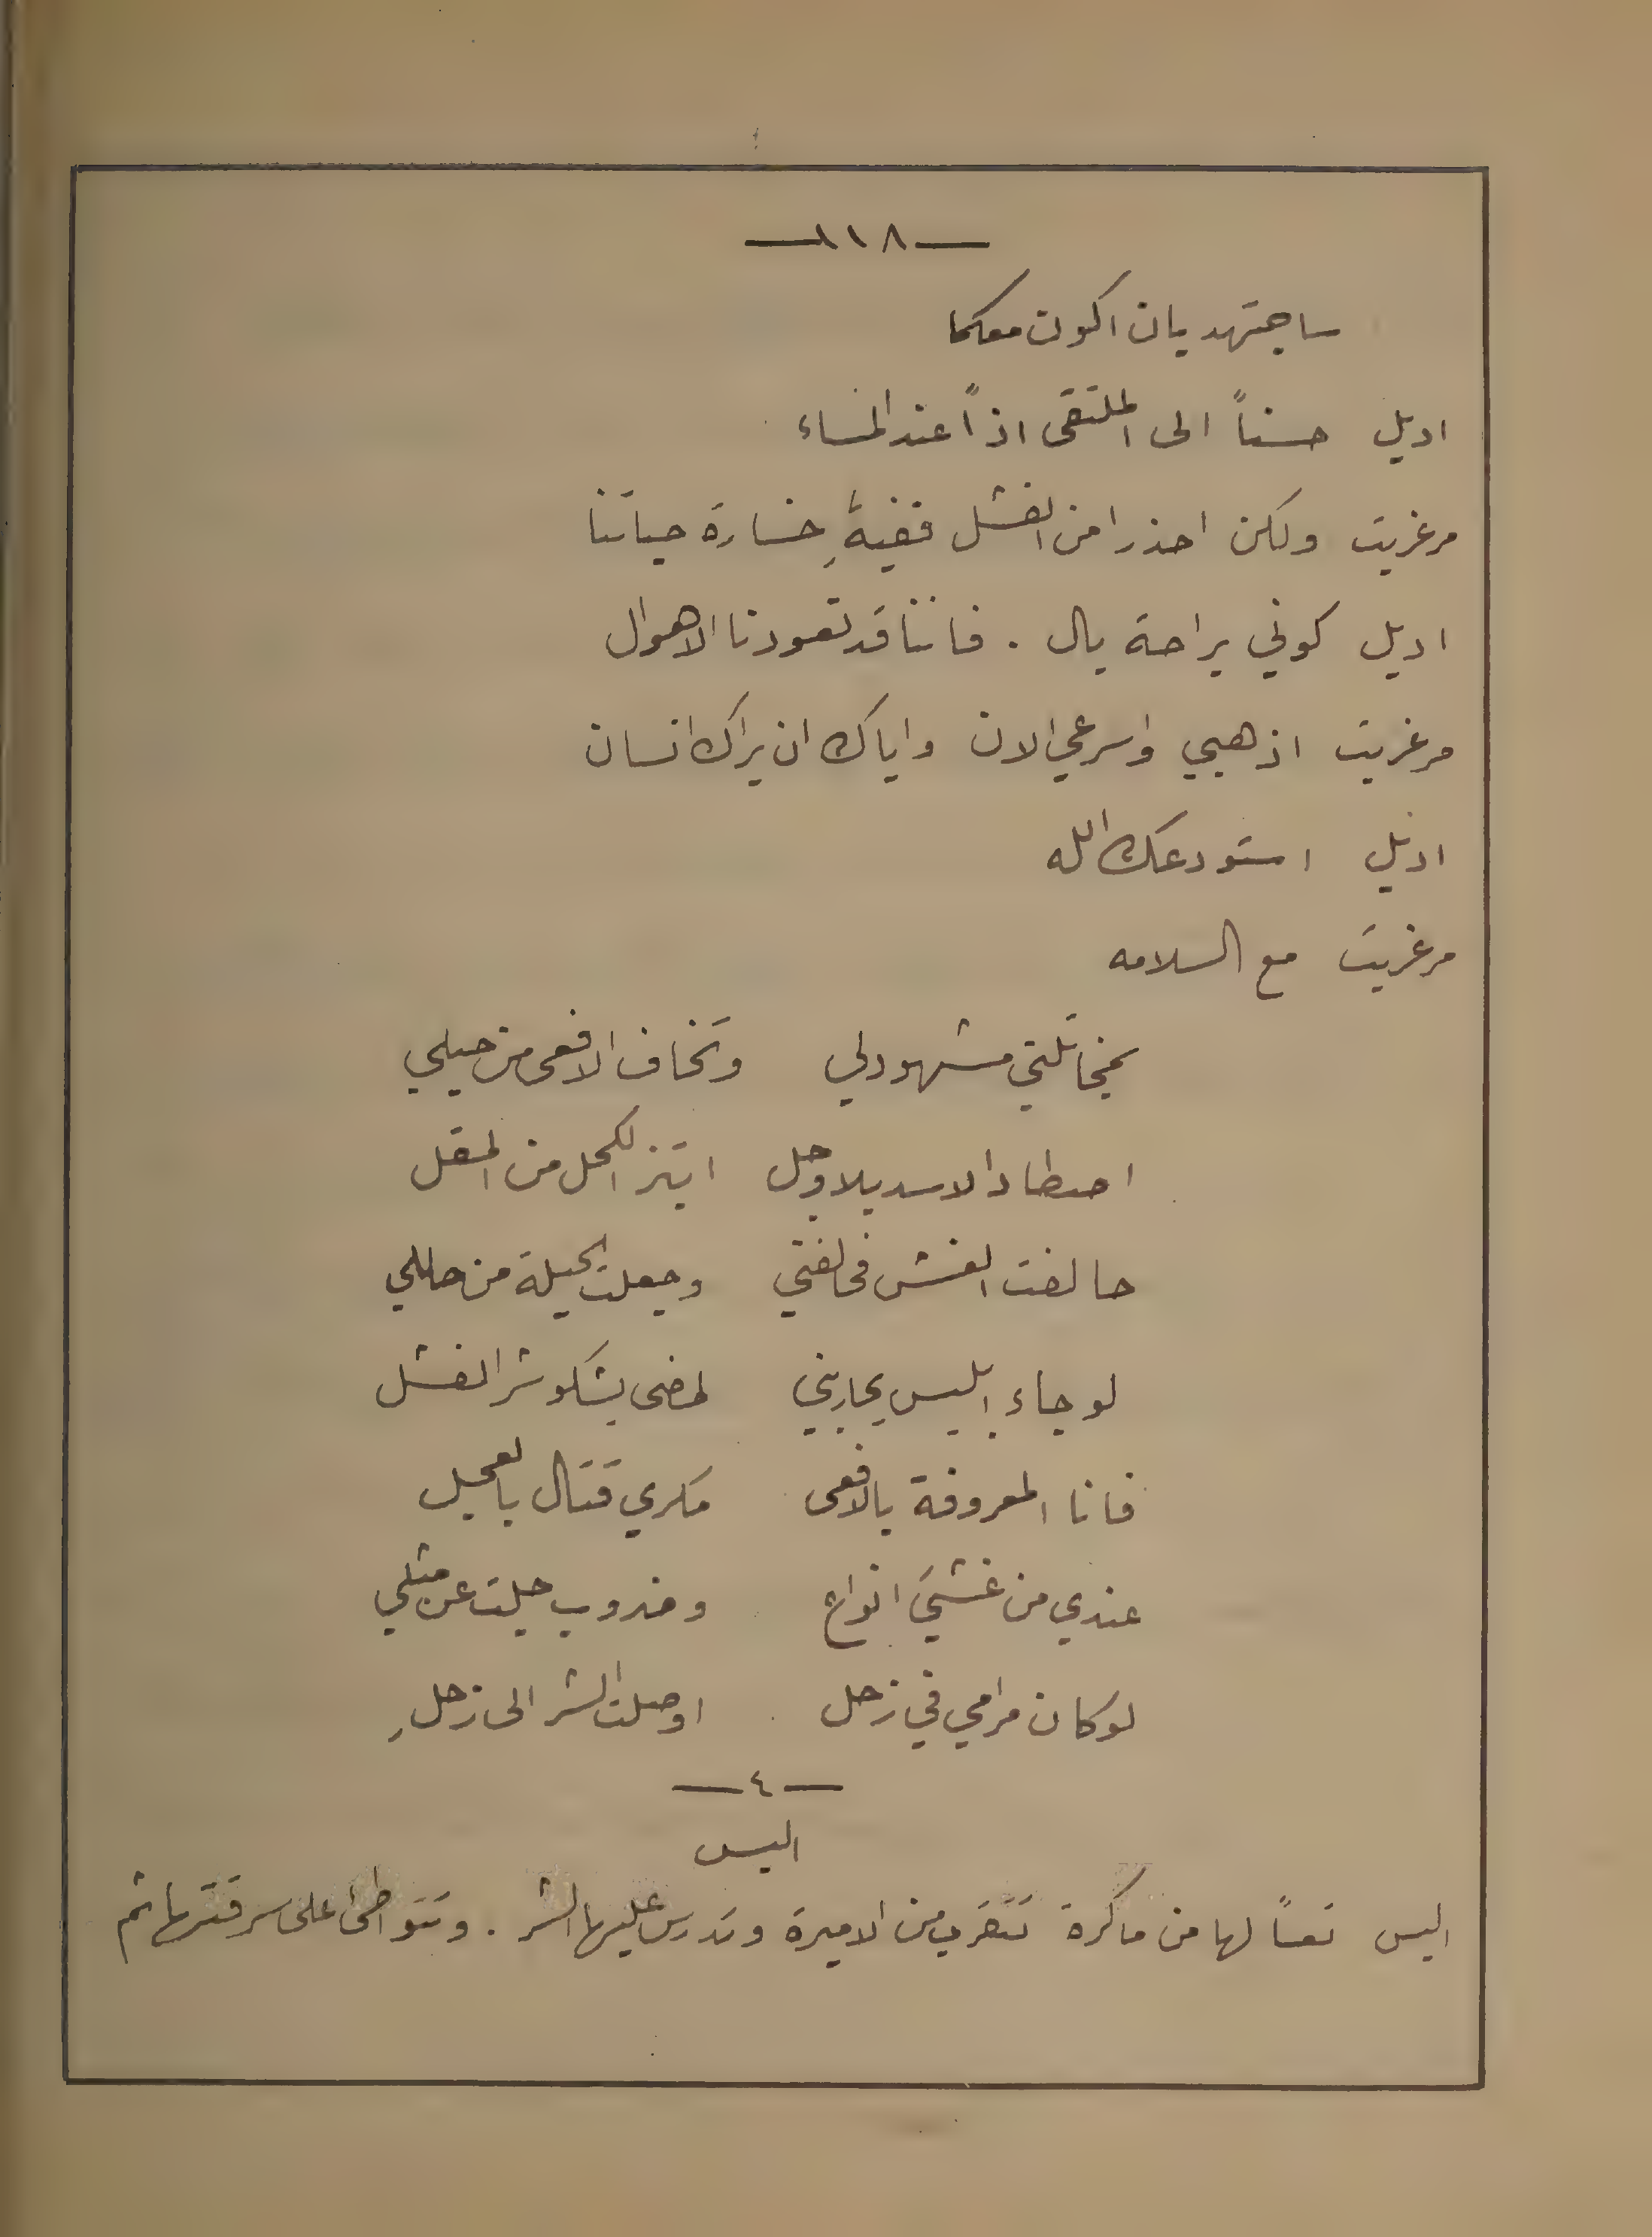 —١١٨—
ساجتهد بان اكون معكما
اديل حسناً الى الملتقى اذاً عند المساء
مرغريت ولكن احذرا من الفشل ففيهِ خسارة حياتنا
اديل كوني براحة بال . فاننا قد تعودنا الاهوال
مرغريت اذهبي واسرعي الان واياك ان يراك انسان
اديل استودعك الله
مرغريت مع السلامه
بمخاتلتي مشهود لي وتخاف الافعى من حيلي
اصطاد الاسد بلا وجل ابتز الكحل من المقل
حالفت الغش فحالفني وجعلت الحيلة من حللي
لو جاء ابليس يحاربني لمضى يشكو شر الفشل
فانا المعروفة بالافعى مكري قتال بالعجل
عندي من غشيَ انواع وضروب جلت عن مثلي
لو كان مرامي في زحل اوصلت الشر الى زحلِ
—٤—
اليس
اليس تعساً لها من ماكرة تتقرب من الاميرة وتدرس عليها الشر . وتتواطئ على سرقتها ثم